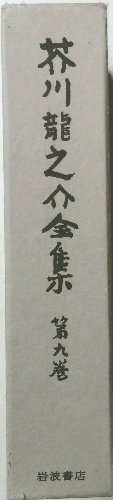 芥川龍之介全集
第九巻
岩波書店